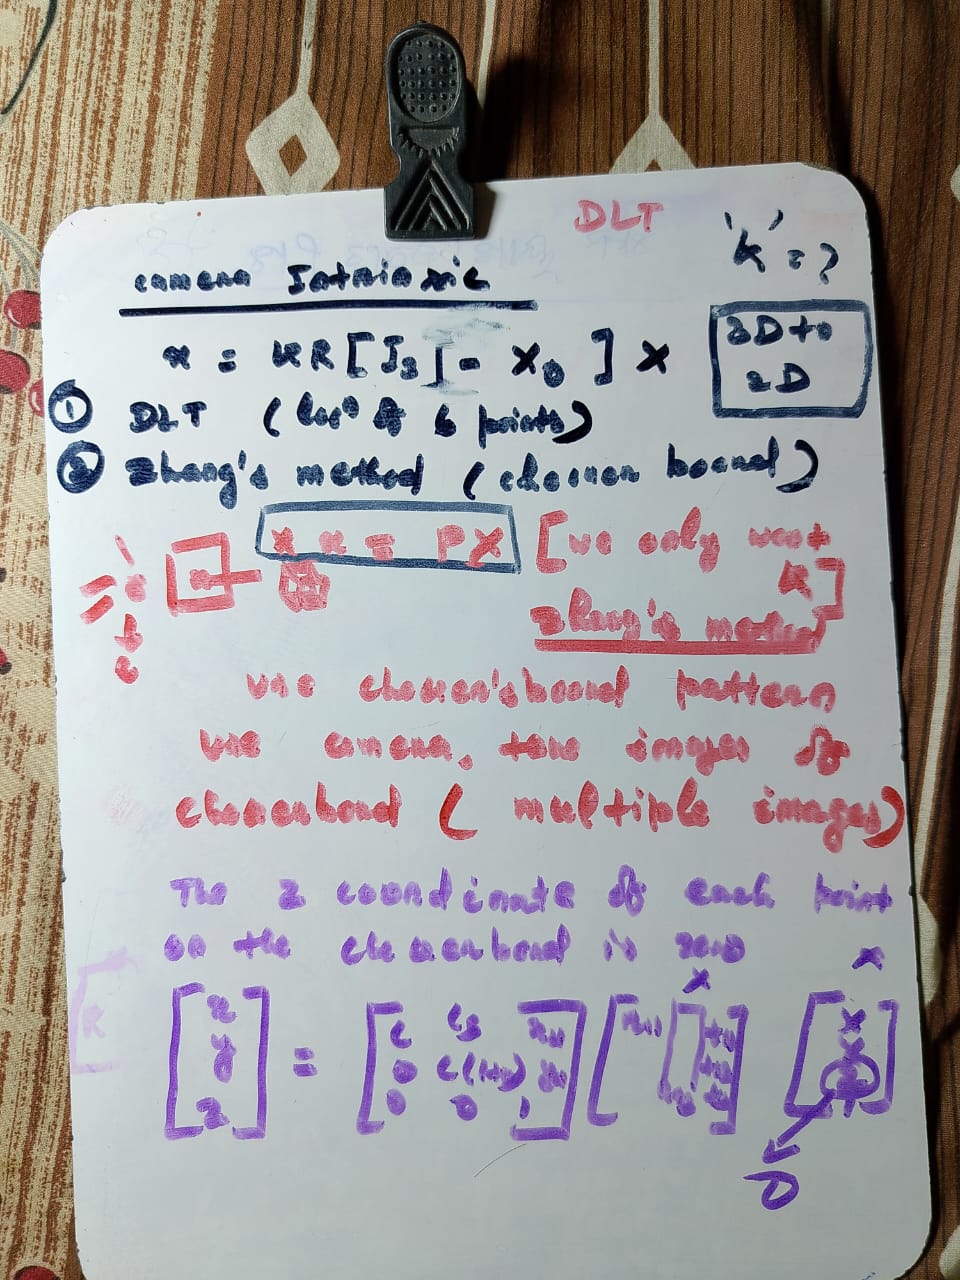 DLT
'K' = ?
camera Intrinsic
3D to
2D
x = KR [I3 | - X0 ] X
① DLT (        6 points)
② Zhang's method (checker board)
x = PX [we only want
K]
Zhang's method
use checker'sboard pattern
use camera, take images of
checkerboard ( multiple images)
The z coordinate of each point
on the checkerboard is zero
[ x y z ] = [ c cs xH 0 c(1+m) yH 0 0 1 ] [
X
Y
0